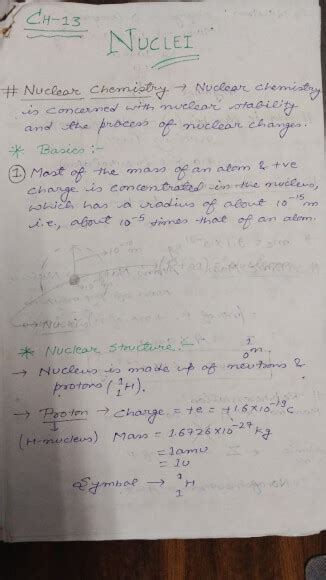 CH-13
NUCLEI
# Nuclear Chemistry → Nuclear chemistry
is concerned with nuclear stability
and the process of nuclear changes.
* Basics :-
① Most of the mass of an atom & +ve
charge is concentrated in the nucleus,
which has a radius of about 10⁻¹⁵ m
i.e, about 10⁻⁵ times that of an atom.
* Nuclear Structure :-
→ Nucleus is made up of neutrons &
protons (¹₁H).
→ Proton → Charge = +e = +1.6×10⁻¹⁹ C
(H-nucleus) Mass = 1.6726×10⁻²⁷ kg
= 1amu
= 1u
Symbol → ¹₁H